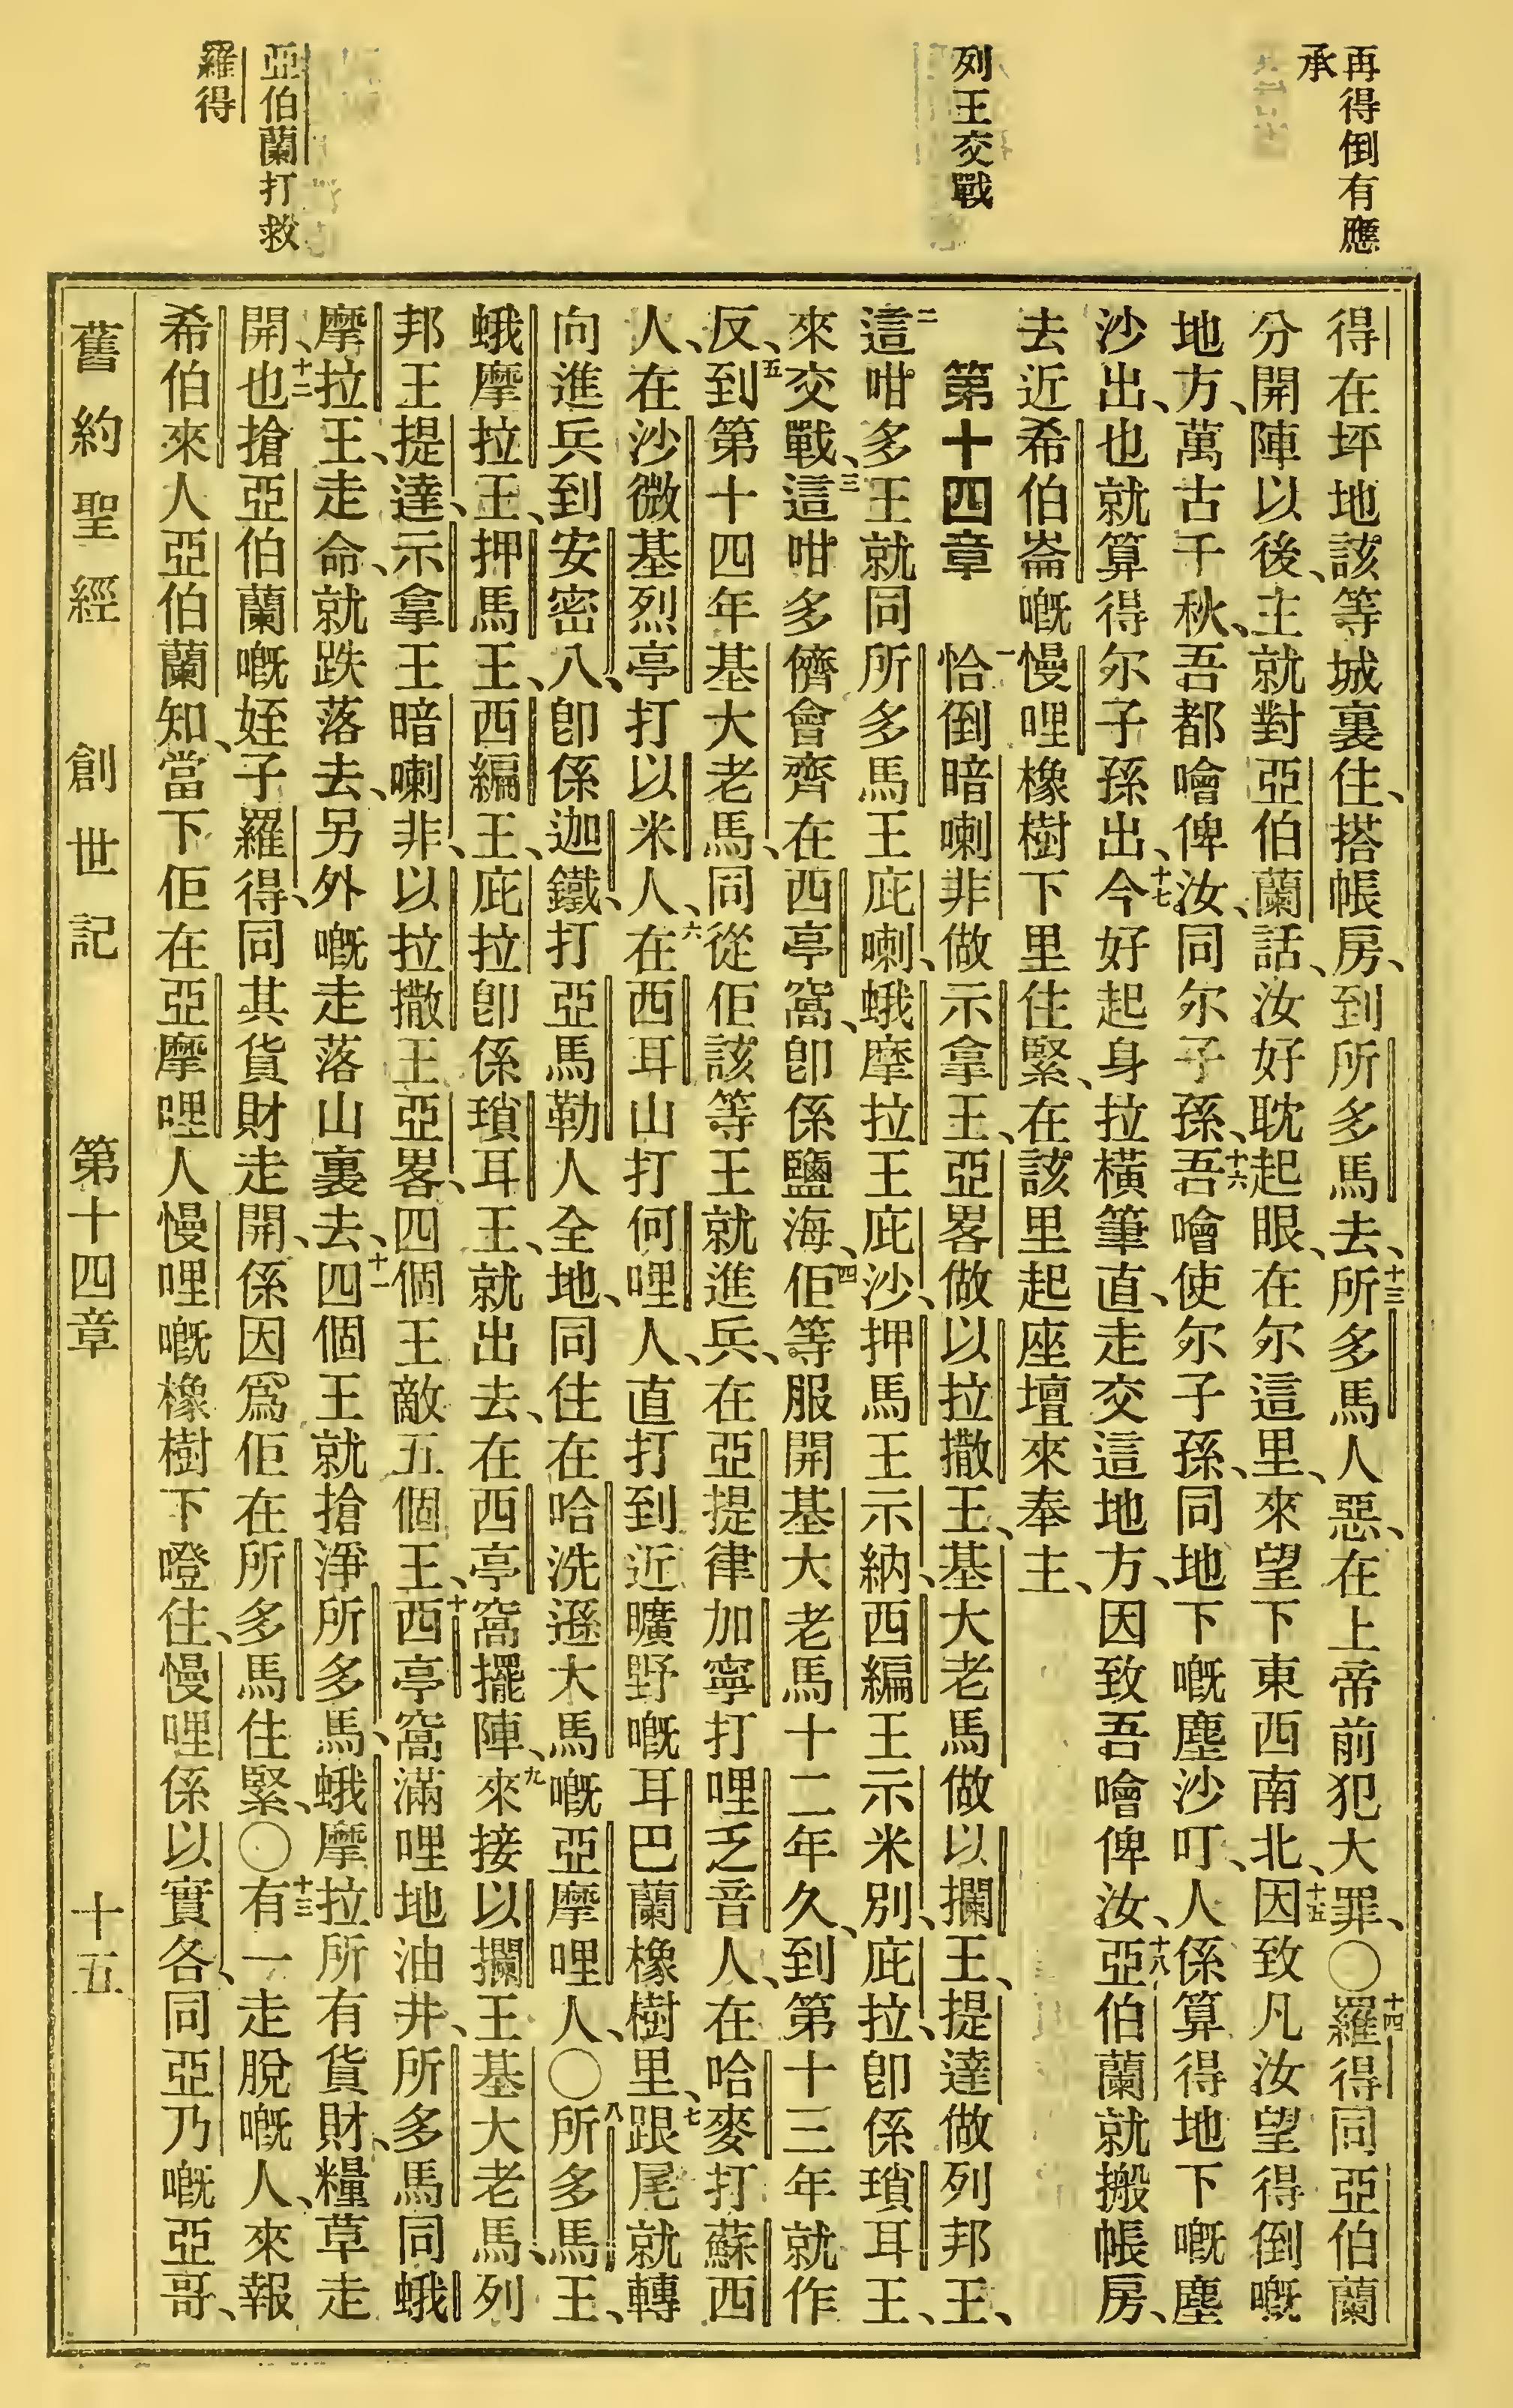 再得倒有應
承
列王交戰
亞伯蘭打救
羅得
得在坪地該等城裏住、搭帳房、到所多馬去、十三所多馬人惡、在上帝前犯大罪、〇十四羅得同亞伯蘭
分開陣以後、主就對亞伯蘭話、汝好耽起眼、在尔這里、來望下東西南北、十五因致凡汝望得倒嘅
地方、萬古千秋、吾都噲俾汝、同尔子孫、十六吾噲使尔子孫、同地下嘅塵沙叮、人係算得地下嘅塵
沙出、也就算得尔子孫出、十七今好起身拉橫筆直、走交這地方、因致吾噲俾汝、十八亞伯蘭就搬帳房、
去近希伯崙嘅慢哩橡樹下里住緊、在該里起座壇來奉主、
第十四章 一恰倒暗喇非做示拿王、亞畧做以拉撒王、基大老馬做以攔王、提達做列邦王、
二這咁多王就同所多馬王庇喇、蛾摩拉王庇沙、押馬王示納、西編王示米別、庇拉、卽係瑣耳王、
來交戰、三這咁多儕會齊在西亭窩、卽係鹽海、四佢等服開基大老馬十二年久、到第十三年就作
反、五到第十四年基大老馬、同從佢該等王就進兵、在亞提律加寧打哩乏音人、在哈麥打蘇西
人、在沙微基烈亭打以米人、六在西耳山打何哩人、直打到近曠野嘅耳巴蘭橡樹里、七跟尾就轉
向進兵到安密八、卽係迦鐵、打亞馬勒人全地、同住在哈洗遜大馬嘅亞摩哩人、〇八所多馬王、
蛾摩拉王、押馬王、西編王、庇拉卽係瑣耳王、就出去、在西亭窩擺陣、九來接以攔王基大老馬、列
邦王提達、示拿王暗喇非、以拉撒王亞畧、四個王敵五個王、十西亭窩滿哩地油井、所多馬同蛾
摩拉王、走命、就跌落去、另外嘅走落山裏去、十一四個王就搶淨所多馬、蛾摩拉所有貨財、糧草走
開、十二也搶亞伯蘭嘅姪子羅得、同其貨財走開、係因爲佢在所多馬住緊、〇十三有一走脫嘅人、來報
希伯來人亞伯蘭知、當下佢在亞摩哩人慢哩嘅橡樹下嶝住、慢哩係以實各、同亞乃嘅亞哥、
舊約聖經 創世記 第十四章 十五